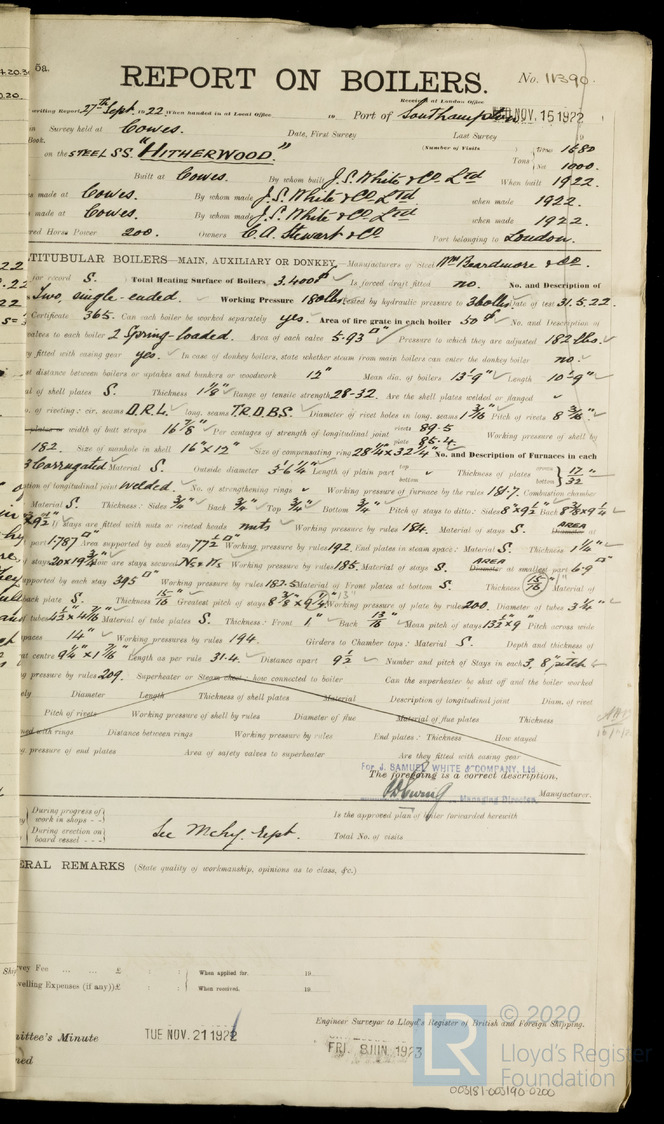 5a.
REPORT ON BOILERS. No. 11390.
Received at London Office
writing Report 27th Sept. 1922 When handed in at Local Office 19 Port of Southampton NOV. 15 1922
Survey held at Cowes. Date, First Survey Last Survey 19
Book. (Number of Visits
on the STEEL S.S. "HITHERWOOD." Tons { Gross 1680 Net 1000.
Built at Cowes. By whom built J. S. White & Co Ltd When built 1922.
made at Cowes. By whom made J. S. White & Co Ltd when made 1922.
made at Cowes. By whom made J. S. White & Co Ltd when made 1922.
Horse Power 200. Owners C. A. Stewart & Co Port belonging to London.
TITUBULAR BOILERS—MAIN, AUXILIARY OR DONKEY.—Manufacturers of Steel Wm Beardmore & Co.
for record S. Total Heating Surface of Boilers 3,400 Is forced draft fitted no. No. and Description of
Two, single-ended. Working Pressure 180 lbs. Tested by hydraulic pressure to Date of test 31.5.22.
Certificate 365. Can each boiler be worked separately yes. Area of fire grate in each boiler 50 No. and Description of
valves to each boiler 2 Spring-loaded. Area of each valve 5.93 Pressure to which they are adjusted 182 lbs.
fitted with easing gear yes. In case of donkey boilers, state whether steam from main boilers can enter the donkey boiler no.
distance between boilers or uptakes and bunkers or woodwork 12" Mean dia. of boilers 13'-9" Length 10'-9"
of shell plates S. Thickness 1 1/8" Range of tensile strength 28-32. Are the shell plates welded or flanged
of riveting: cir. seams D.R.L. long. seams T.R.D.B.S. Diameter of rivet holes in long. seams 1 3/16" Pitch of rivets 8 3/16"
width of butt straps 16 7/8" Per centages of strength of longitudinal joint rivets 89.5 plate 85.4 Working pressure of shell by
182. Size of manhole in shell 16" x 12" Size of compensating ring 28 1/4 x 32 1/4" No. and Description of Furnaces in each
3 Corrugated Material S. Outside diameter 3'-6 1/4" Length of plain part top bottom Thickness of plates crown bottom 17/32"
of longitudinal joint welded. No. of strengthening rings Working pressure of furnace by the rules 181.7. Combustion chamber
Material S. Thickness: Sides 3/4" Back 3/4" Top 3/4" Bottom 3/4" Pitch of stays to ditto: Sides 8" x 9 1/2" Back 8 3/8 x 9 1/4"
If stays are fitted with nuts or riveted heads nuts Working pressure by rules 184. Material of stays S. AREA at
part 1.787 Area supported by each stay 77 1/2 Working pressure by rules 192. End plates in steam space: Material S. Thickness 1 1/4"
stays 20 x 19 3/4" How are stays secured Working pressure by rules 185. Material of stays S. AREA at smallest part 6.9
supported by each stay 395 Working pressure by rules 182.5 Material of Front plates at bottom S. Thickness 15/16" Material of
back plate S. Thickness 15/16" Greatest pitch of stays Working pressure of plate by rules 200. Diameter of tubes 3 1/4"
tubes 4 1/2" x 4 7/16" Material of tube plates S. Thickness: Front 1" Back 13/16" Mean pitch of stays 13 1/2 x 9" Pitch across wide
spaces 14" Working pressures by rules 194. Girders to Chamber tops: Material S. Depth and thickness of
at centre 9 1/4" x 1 7/16" Length as per rule 31.4. Distance apart 9 1/2 Number and pitch of Stays in each 3, 8" pitch
pressure by rules 209. Superheater or Steam chest; how connected to boiler Can the superheater be shut off and the boiler worked
Diameter Length Thickness of shell plates Material Description of longitudinal joint Diam. of rivet
Pitch of rivets Working pressure of shell by rules Diameter of flue Material of flue plates Thickness
with rings Distance between rings Working pressure by rules End plates: Thickness How stayed
pressure of end plates Area of safety valves to superheater Are they fitted with easing gear
For J. SAMUEL WHITE & COMPANY, Ltd.
The foregoing is a correct description,
Managing Director. Manufacturer.
During progress of work in shops - - Is the approved plan of boiler forwarded herewith
During erection on board vessel - - - See Mchy. Rept. Total No. of visits
ERAL REMARKS (State quality of workmanship, opinions as to class, &c.)
Survey Fee ... ... £ : : When applied for, 19
Travelling Expenses (if any) £ : : When received, 19
Engineer Surveyor to Lloyd's Register of British and Foreign Shipping.
mittee's Minute TUE. NOV. 21 1922 FRI. 8 JUN. 1923
ned
© 2020
LR
Lloyd's Register
Foundation
003181-003190-0200